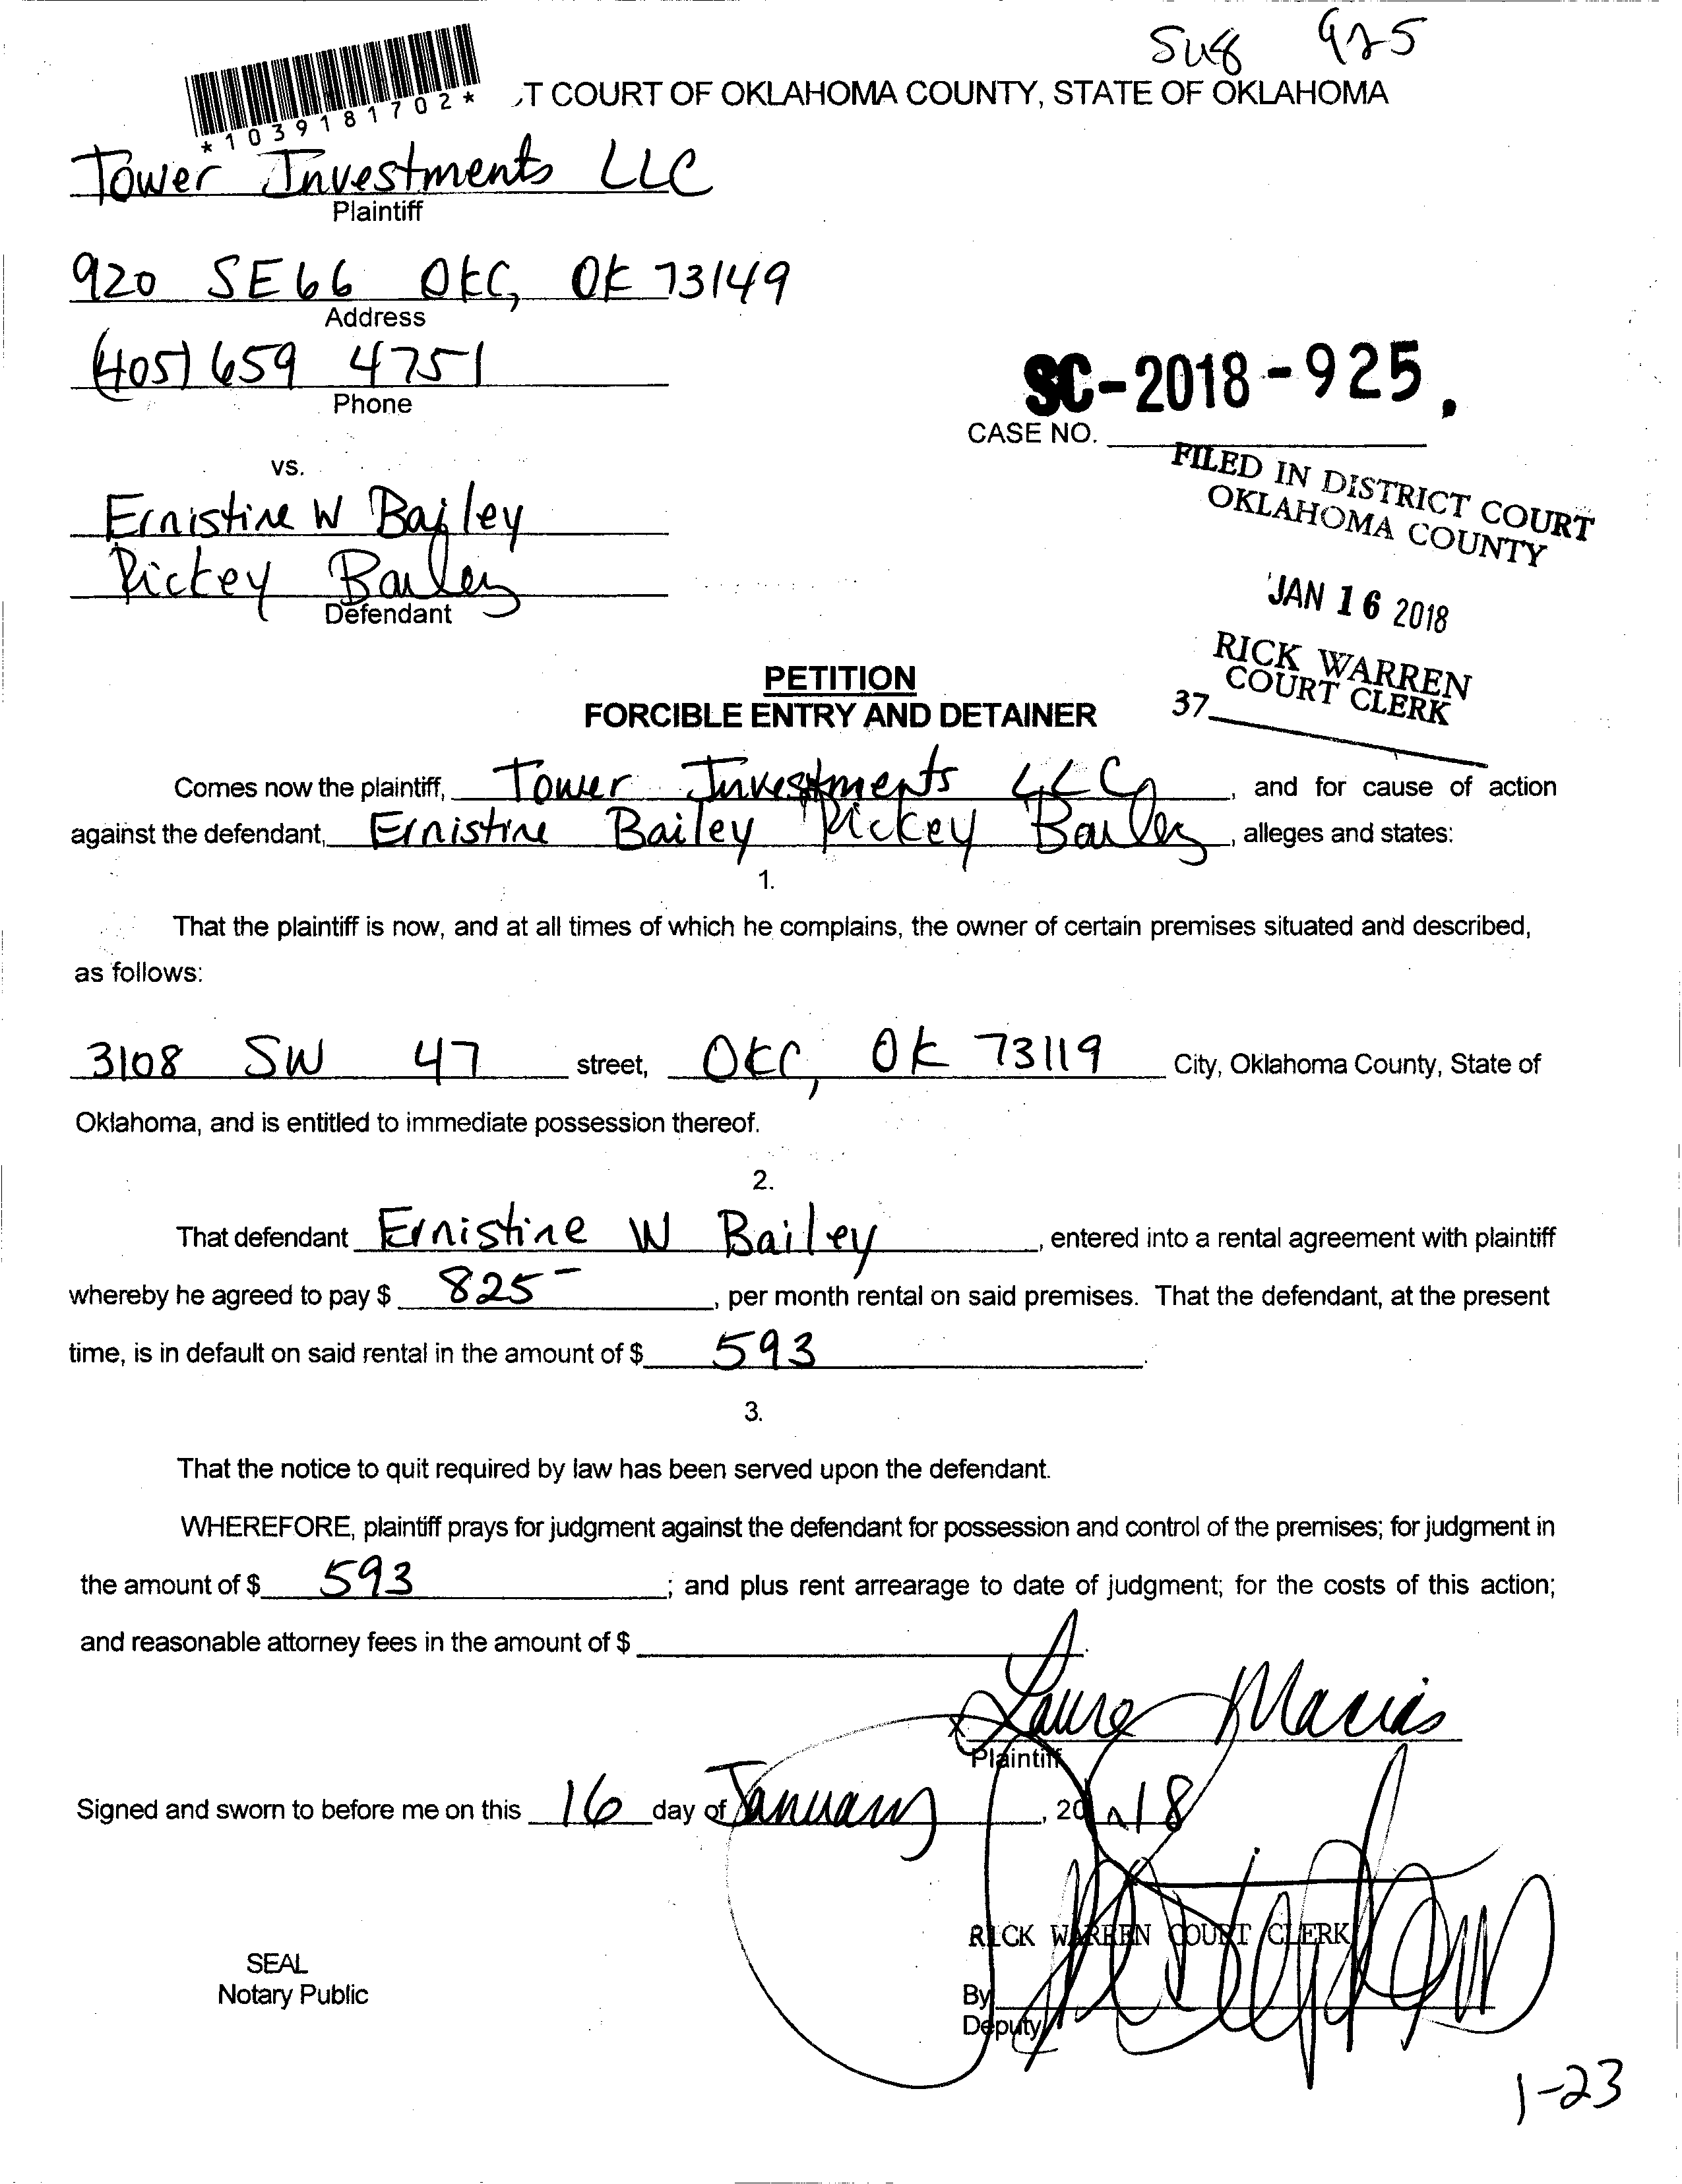 Su8 925
*1039181702*
T COURT OF OKLAHOMA COUNTY, STATE OF OKLAHOMA
Tower Investments LLC
Plaintiff
920 SE 66 OKC, OK 73149
Address
(405) 659 4751
Phone
SC-2018-925
CASE NO.
vs.
FILED IN DISTRICT COURT
OKLAHOMA COUNTY
JAN 16 2018
RICK WARREN
COURT CLERK
37
Ernistine W Bailey
Rickey Bailey
Defendant
PETITION
FORCIBLE ENTRY AND DETAINER
Comes now the plaintiff, Tower Investments LLC, and for cause of action
against the defendant, Ernistine Bailey Rickey Bailey, alleges and states:
1.
That the plaintiff is now, and at all times of which he complains, the owner of certain premises situated and described,
as follows:
3108 SW 47 street, OKC, OK 73119 City, Oklahoma County, State of
Oklahoma, and is entitled to immediate possession thereof.
2.
That defendant Ernistine W Bailey, entered into a rental agreement with plaintiff
whereby he agreed to pay $ 825-, per month rental on said premises. That the defendant, at the present
time, is in default on said rental in the amount of $ 593.
3.
That the notice to quit required by law has been served upon the defendant.
WHEREFORE, plaintiff prays for judgment against the defendant for possession and control of the premises; for judgment in
the amount of $ 593; and plus rent arrearage to date of judgment; for the costs of this action;
and reasonable attorney fees in the amount of $
x Laura Macias
Plaintiff
Signed and sworn to before me on this 16 day of January, 2018
RICK WARREN COURT CLERK
SEAL
Notary Public
By
Deputy
1-23